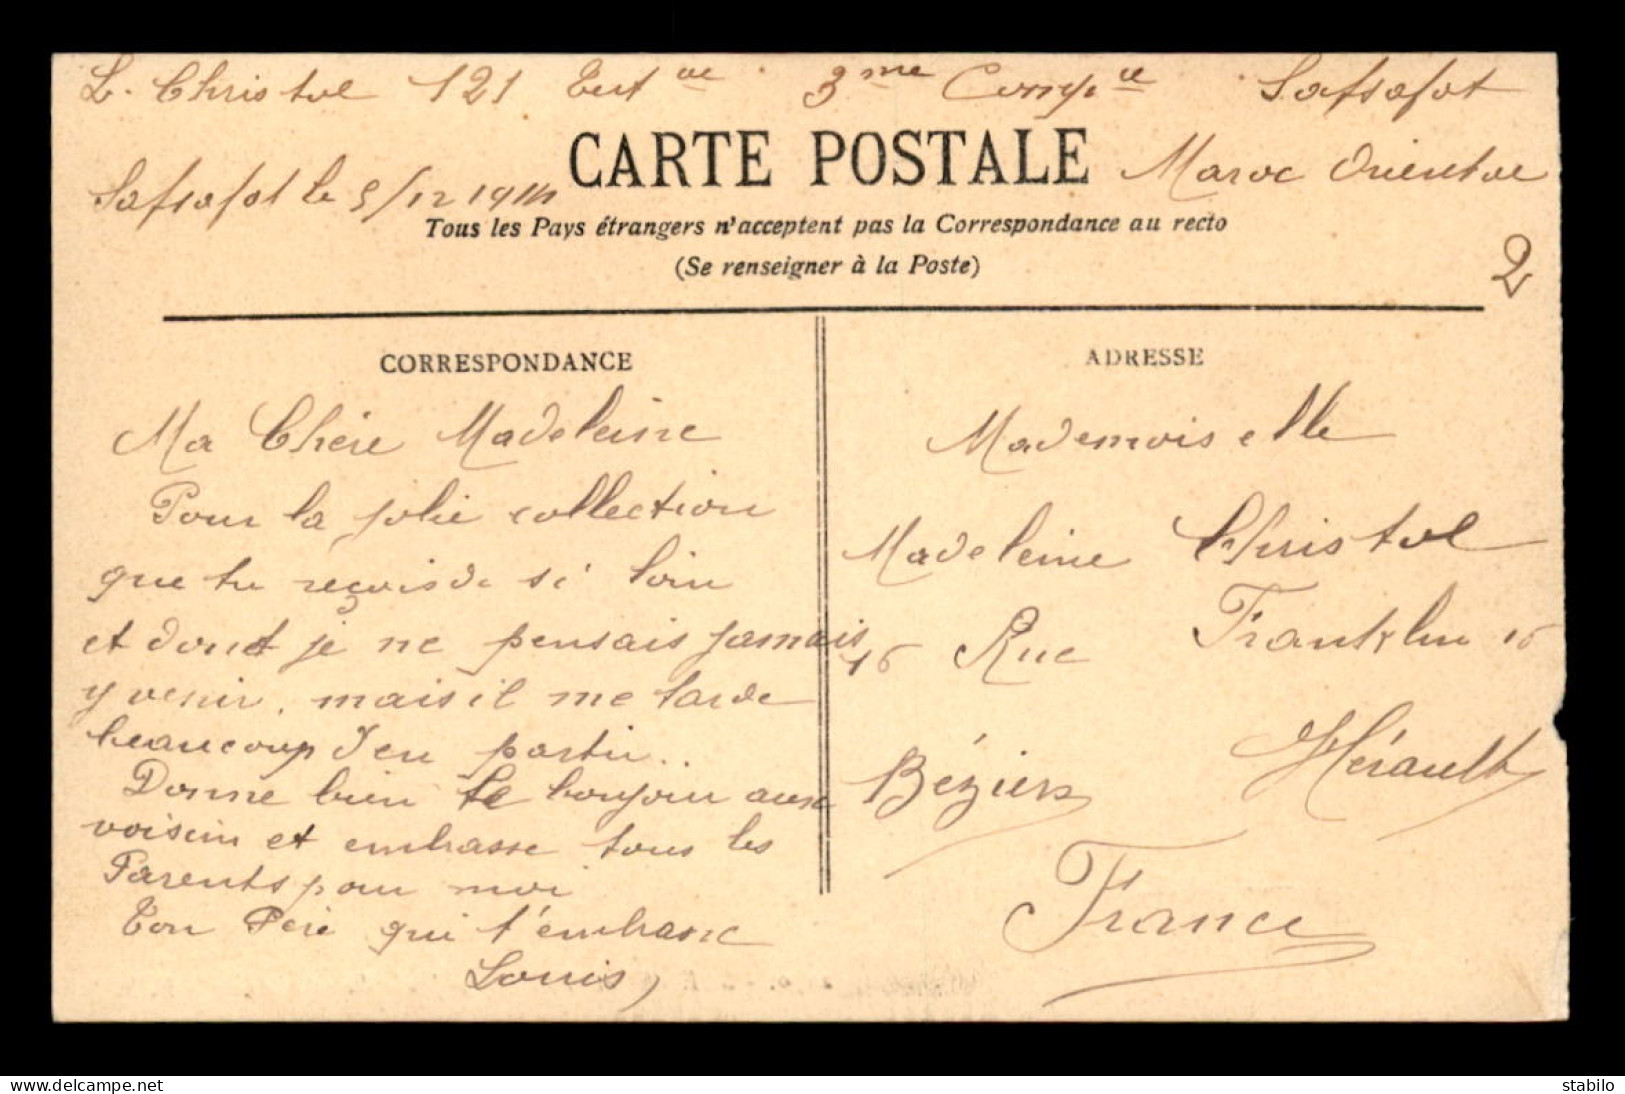 L. Christol 121 Terr ale 3me Compie Safsafat
Maroc Oriental
Safsafat le 5/12 1914
CARTE POSTALE
Tous les Pays étrangers n'acceptent pas la Correspondance au recto
(Se renseigner à la Poste)
2
CORRESPONDANCE
Ma Chère Madeleine
Pour la jolie collection
que tu reçois de si loin
et dont je ne pensais jamais
y venir, mais il me tarde
beaucoup d'en partir..
Donne bien le bonjour aux
voisin et embrasse tous les
Parents pour moi
Ton Père qui t'embrasse
Louis
ADRESSE
Mademoiselle
Madeleine Christol
16 Rue Franklin 16
Béziers Hérault
France
stabilo